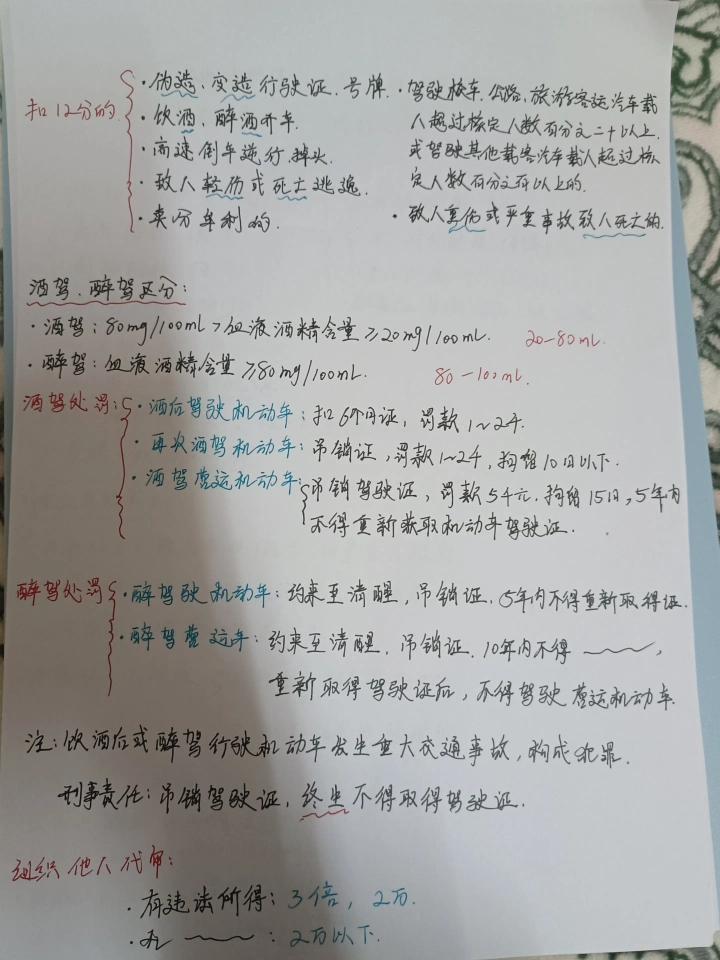 扣12分的
· 伪造、变造行驶证、号牌.
· 饮酒、醉酒开车.
· 高速倒车逆行、掉头.
· 致人轻伤或死亡逃逸.
· 卖分牟利的.
· 驾驶校车、公路、旅游客运汽车载
人超过核定人数百分之二十以上.
或驾驶其他载客汽车载人超过核
定人数百分之百以上的.
· 致人重伤或严重事故致人死亡的.
酒驾、醉驾区分:
· 酒驾: 80mg/100mL > 血液酒精含量 ≥20mg/100mL. 20-80mL.
· 醉驾: 血液酒精含量 ≥80mg/100mL. 80-100mL.
酒驾处罚:
· 酒后驾驶机动车: 扣6个月证, 罚款1~2千.
· 再次酒驾机动车: 吊销证, 罚款1~2千, 拘留10日以下.
· 酒驾营运机动车: 吊销驾驶证, 罚款5千元, 拘留15日, 5年内
不得重新获取机动车驾驶证.
醉驾处罚
· 醉驾驶机动车: 约束至清醒, 吊销证. 5年内不得重新取得证.
· 醉驾营运车: 约束至清醒, 吊销证. 10年内不得 ~~,
重新取得驾驶证后, 不得驾驶营运机动车.
注: 饮酒后或醉驾行驶机动车发生重大交通事故, 构成犯罪.
刑事责任: 吊销驾驶证, 终生不得取得驾驶证.
组织他人代审:
· 有违法所得: 3倍, 2万.
· 无 ~~ : 2万以下.